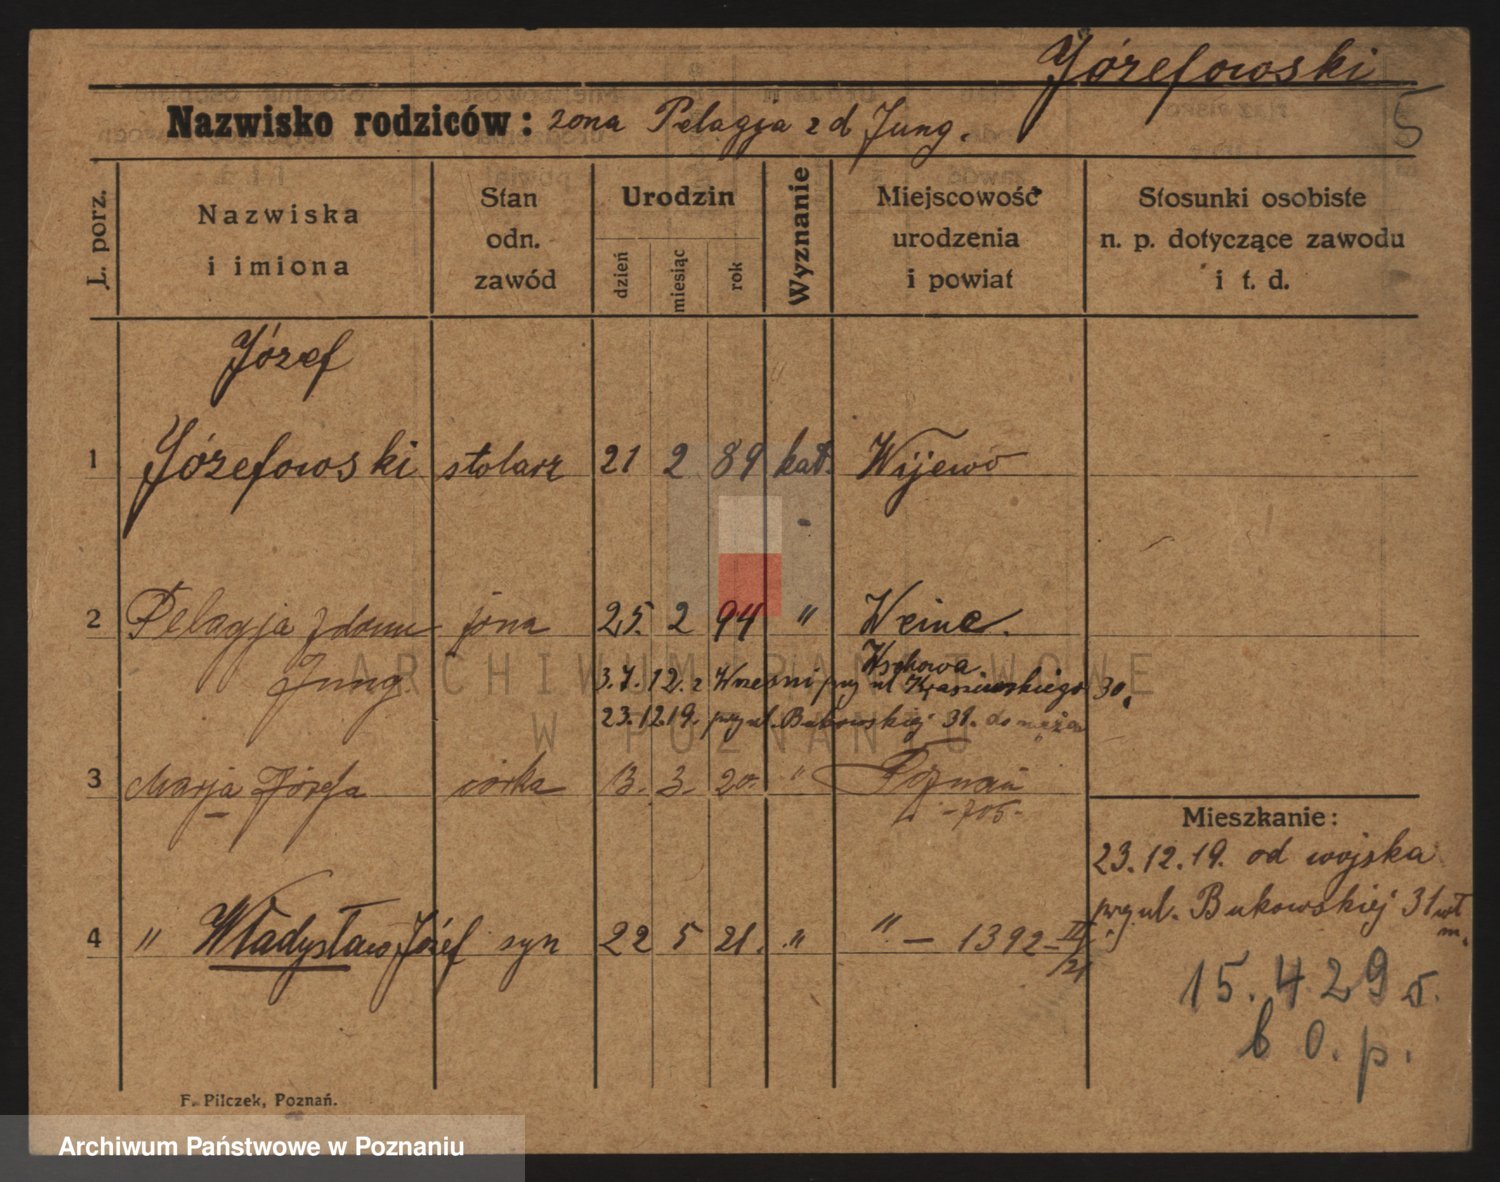 Józefowski
5
Nazwisko rodziców: żona Pelagja z d Jung.
L. porz.
Nazwiska
i imiona
Stan
odn.
zawód
Urodzin
dzień
miesiąc
rok
Wyznanie
Miejscowość
urodzenia
i powiat
Stosunki osobiste
n. p. dotyczące zawodu
i t. d.
Józef
1 Józefowski stolarz 21 2 89 kat. Wijewo
2 Pelagja z domu żona 25. 2 94 " Weine.
Jung
Wschowa
3.7.12. z Wrześni przy ul Kraszewskiego 30.
23.12.19. przy ul. Bukowskiej 31. do męża
3 Marja Józefa córka 13. 3. 20. " Poznań
4 " Władysław Józef syn 22 5 21. " " – 1392 – II/21
Mieszkanie:
23.12.19. od wojska
przy ul. Bukowskiej 31
15.429
b o. p.
F. Pilczek, Poznań.
ARCHIWUM PAŃSTWOWE
W POZNANIU
Archiwum Państwowe w Poznaniu